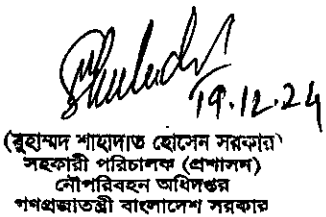 19.12.24
(মুহাম্মদ শাহাদাত হোসেন সরকার)
সহকারী পরিচালক (প্রশাসন)
নৌপরিবহন অধিদপ্তর
গণপ্রজাতন্ত্রী বাংলাদেশ সরকার